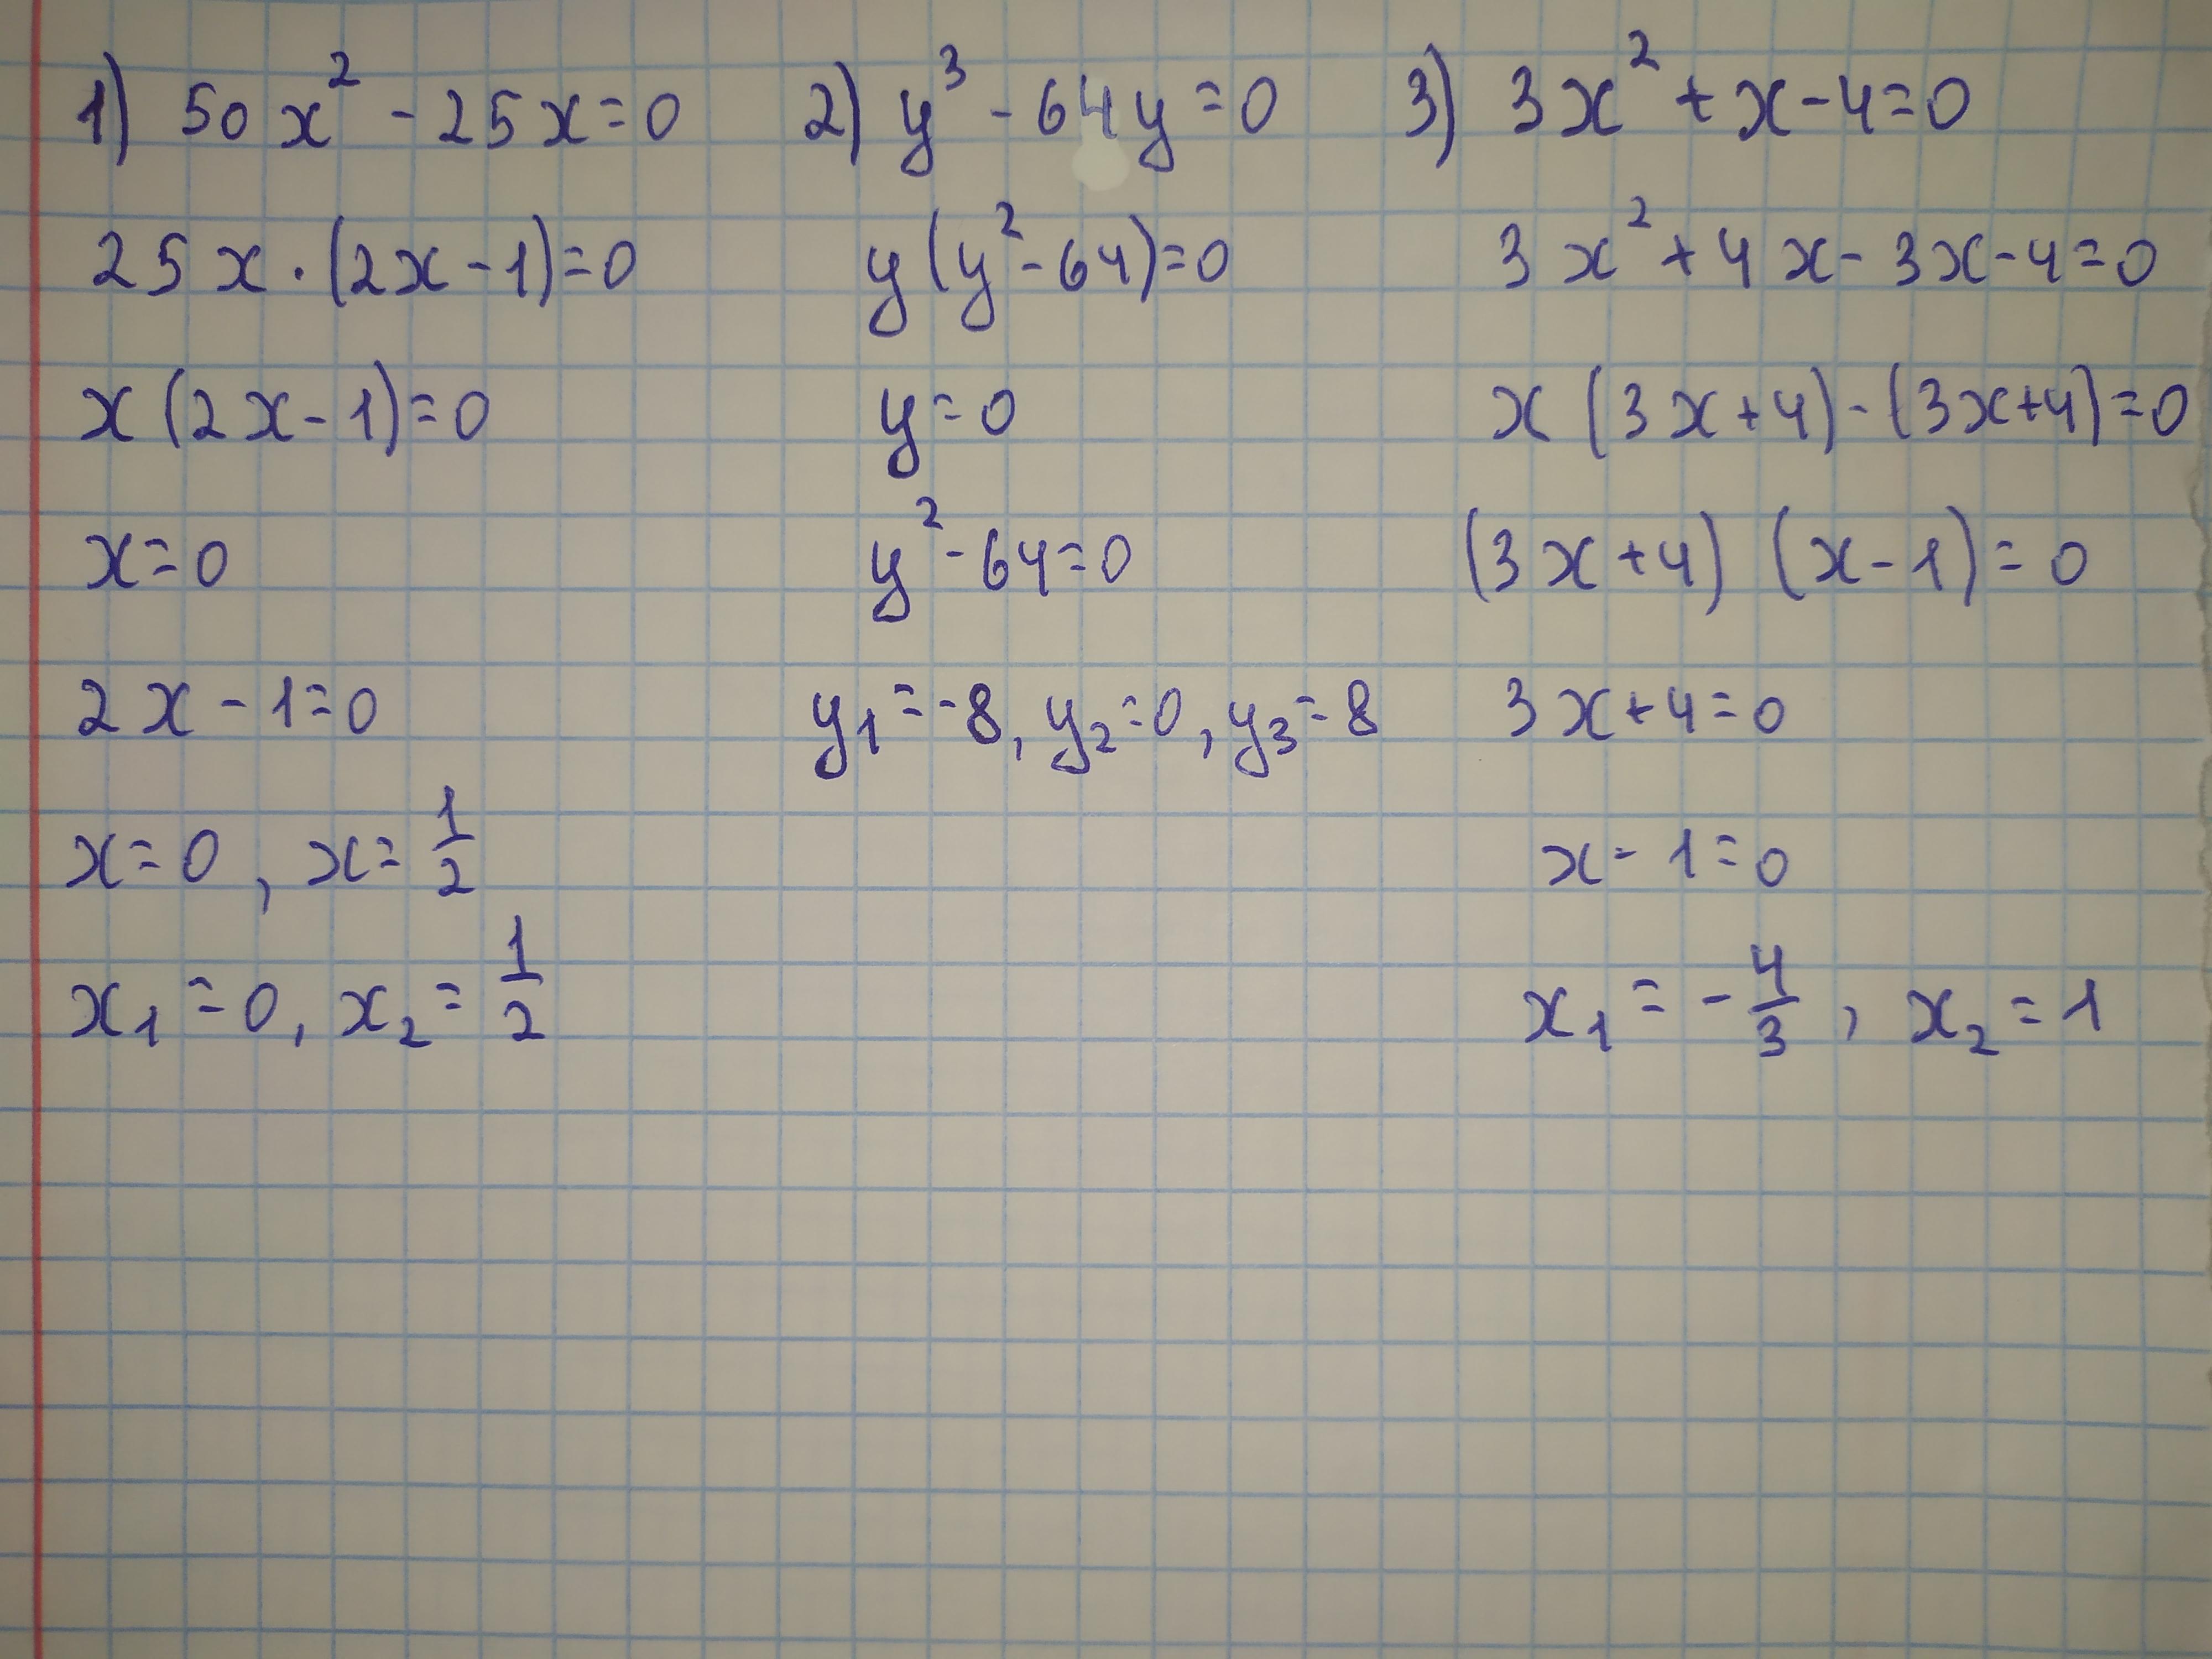 1) 50x² - 25x = 0
25x · (2x - 1) = 0
x (2x - 1) = 0
x = 0
2x - 1 = 0
x = 0, x = 1/2
x₁ = 0, x₂ = 1/2
2) y³ - 64y = 0
y (y² - 64) = 0
y = 0
y² - 64 = 0
y₁ = -8, y₂ = 0, y₃ = 8
3) 3x² + x - 4 = 0
3x² + 4x - 3x - 4 = 0
x (3x + 4) - (3x + 4) = 0
(3x + 4) (x - 1) = 0
3x + 4 = 0
x - 1 = 0
x₁ = -4/3, x₂ = 1